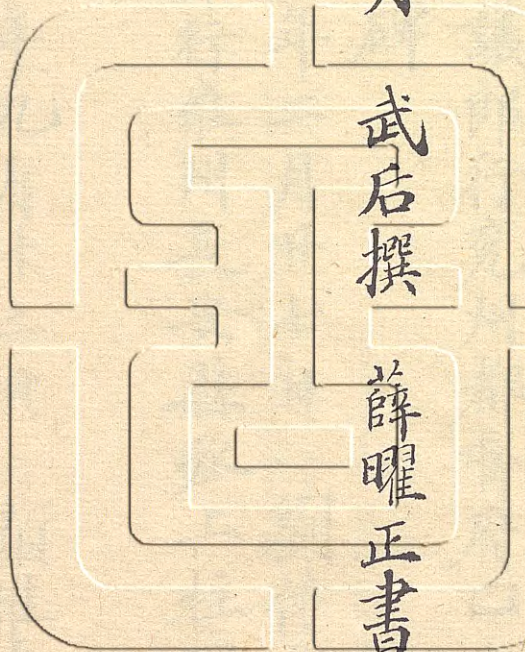 武后撰 薛曜正書